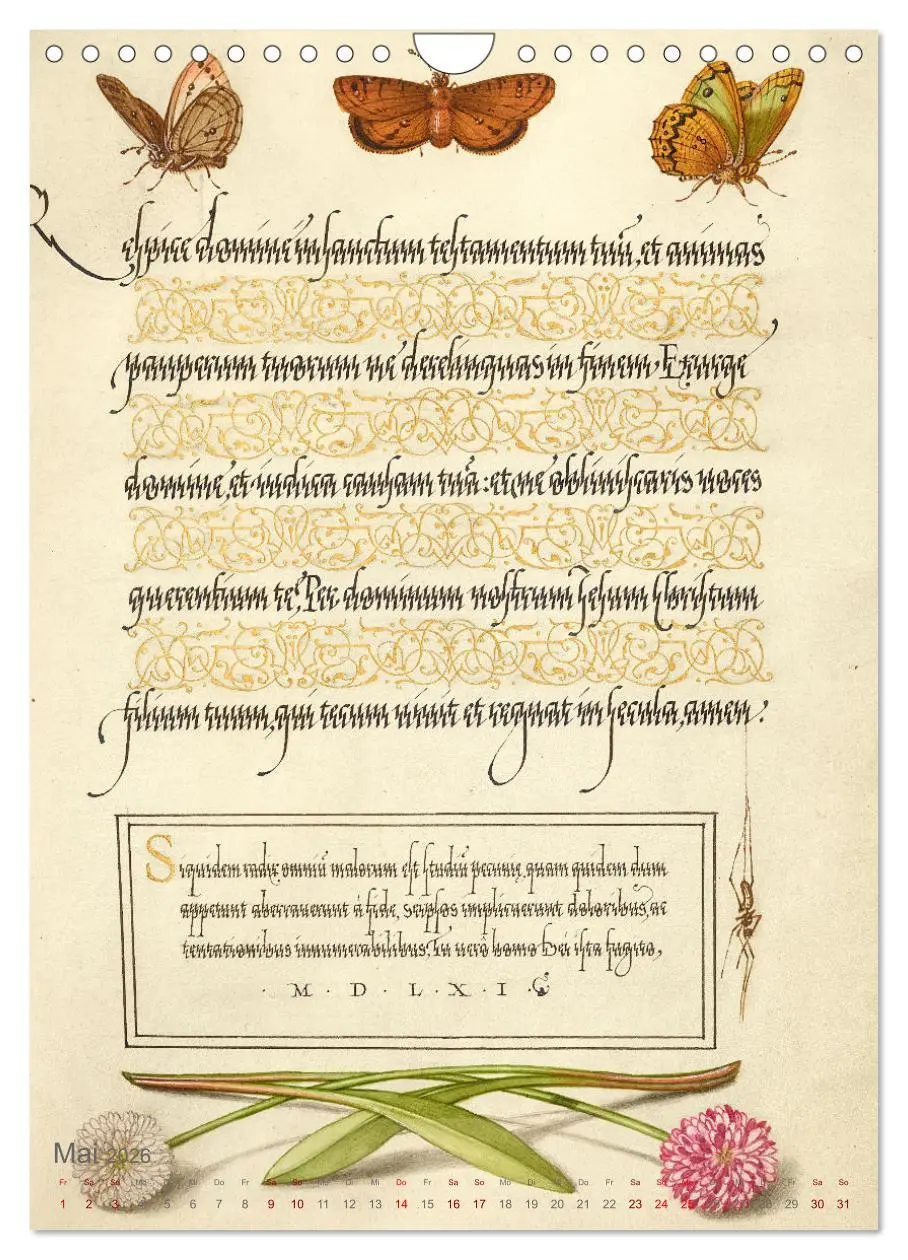 Respice domine in sanctum testamentum tuū, et animas
pauperum tuorum ne derelinquas in finem, Exurge
domine, et iudica causam tuā: et ne obliuiscaris uoces
querentium te, Per dominum nostrum Jesum Christum
filium tuum, qui tecum uiuit et regnat in secula, amen.
Siquidem radix omniū malorum est studiū pecunię, quam quidem dum
appetunt aberrauerunt à fide, seipsos implicuerunt doloribus, ac
tentationibus innumerabilibus, Tu uerò homo Dei ista fugito,
· M · D · L · X · I ·
Mai 2026
Fr Sa So Mo Di Mi Do Fr Sa So Mo Di Mi Do Fr Sa So Mo Di Mi Do Fr Sa So Fr Sa So
1 2 3 4 5 6 7 8 9 10 11 12 13 14 15 16 17 18 19 20 21 22 23 24 25 28 29 30 31